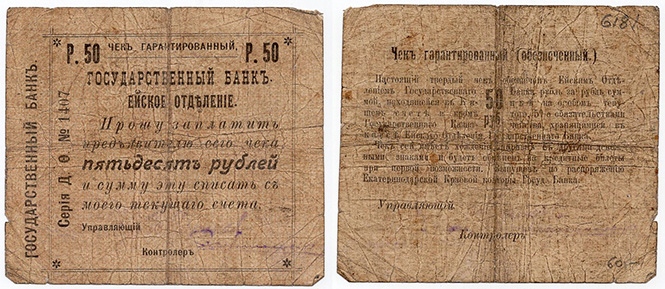 ГОСУДАРСТВЕННЫЙ БАНКЪ.
Серія Д. Ѳ. № 1407
Р. 50 ЧЕКЪ ГАРАНТИРОВАННЫЙ. Р. 50
ГОСУДАРСТВЕННЫЙ БАНКЪ.
ЕЙСКОЕ ОТДѢЛЕНІЕ.
Прошу заплатить
предъявителю сего чека
пятьдесятъ рублей
и сумму эту списать съ
моего текущаго счета.
Управляющій
Контролеръ
6181
Чекъ гарантированный (обезпеченный.)
Настоящій твердый чекъ обезпеченъ Ейскимъ Отдѣ-
леніемъ Государственнаго Банка рубль за рубль сум-
мой, находящейся на особомъ теку-
щемъ счетѣ и кромѣ того обязательствами
Государственнаго Казначейства, хранящимися въ
50
РУБ.
Чекъ сей имѣетъ хожденіе наравнѣ съ другими денеж-
ными знаками и будетъ обмѣненъ на кредитные билеты
при первой возможности. Выпущенъ по распоряженію
Екатеринодарской Краевой конторы Госуд. Банка.
Управляющій
Контролеръ
60.—